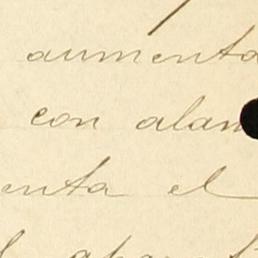 aumenta
con alam
enta el